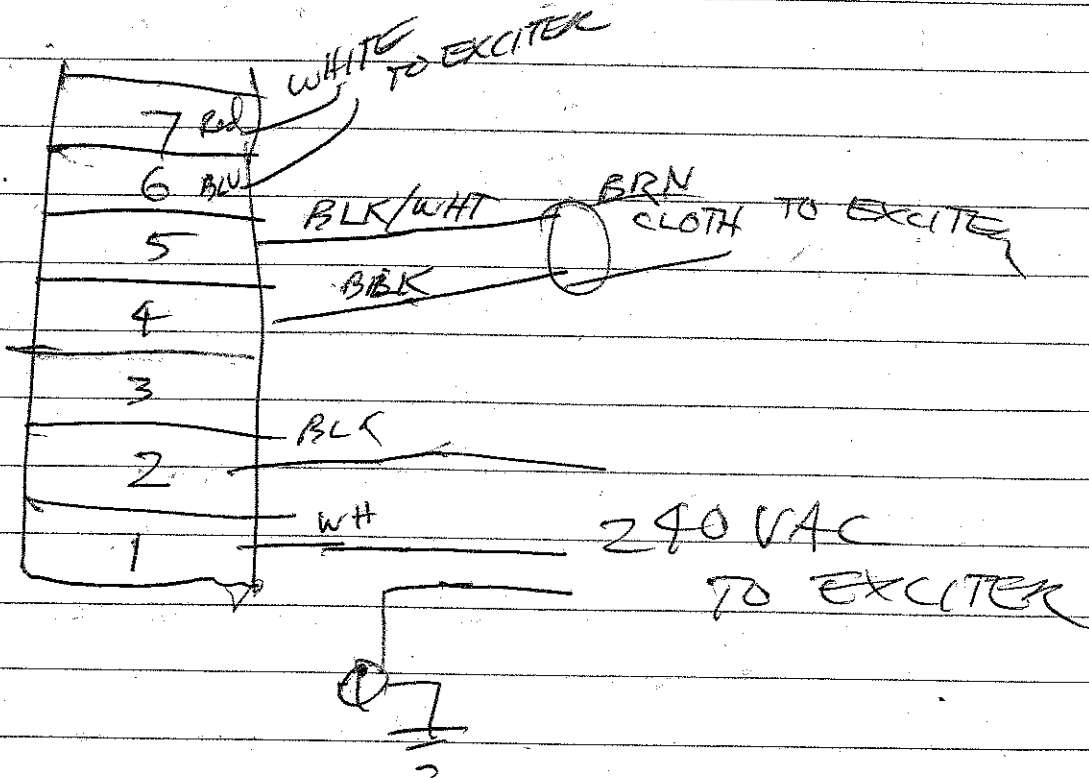 WHITE TO EXCITER
7 Red
6 BLU
BLK/WHT BRN CLOTH TO EXCITER
5
BBK
4
3
BLK
2
WH
1
240 VAC
TO EXCITER